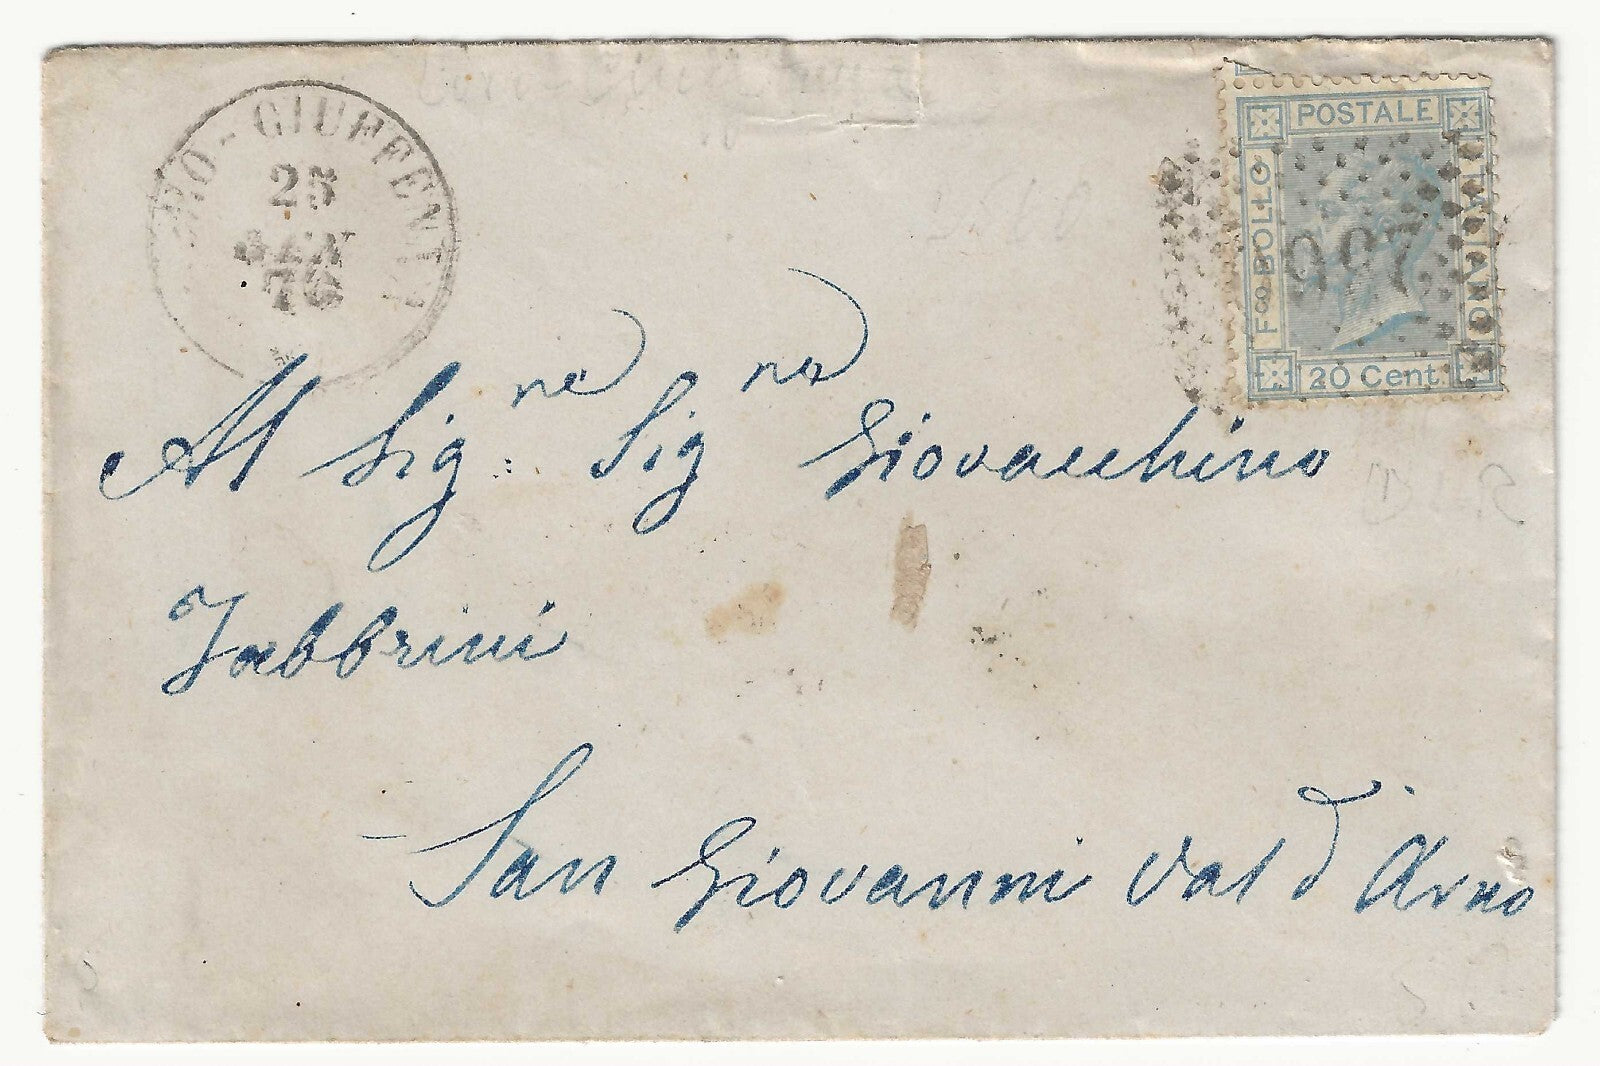 25
GEN
76
POSTALE
Fco BOLLO
ITALIANO
20 Cent
Al Sig:ne Sig.re Giovacchino
Fabbrini
San Giovanni Val d'Arno